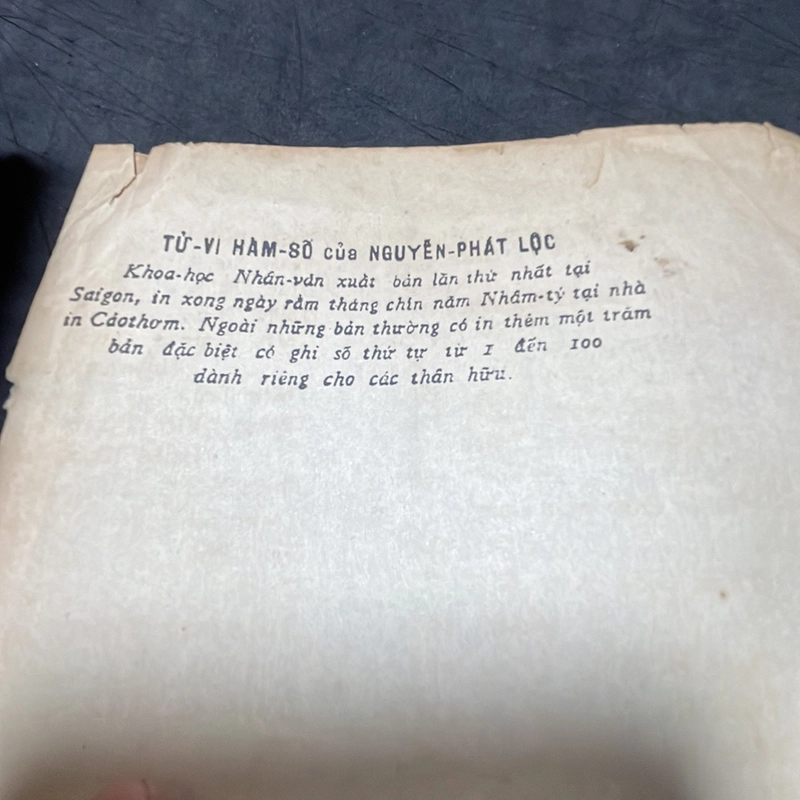 TỬ-VI HÀM-SỐ của NGUYỄN-PHÁT LỘC
Khoa-học Nhân-văn xuất bản lần thứ nhất tại
Saigon, in xong ngày rằm tháng chín năm Nhâm-tý tại nhà
in Cáothơm. Ngoài những bản thường có in thêm một trăm
bản đặc biệt có ghi số thứ tự từ 1 đến 100
dành riêng cho các thân hữu.